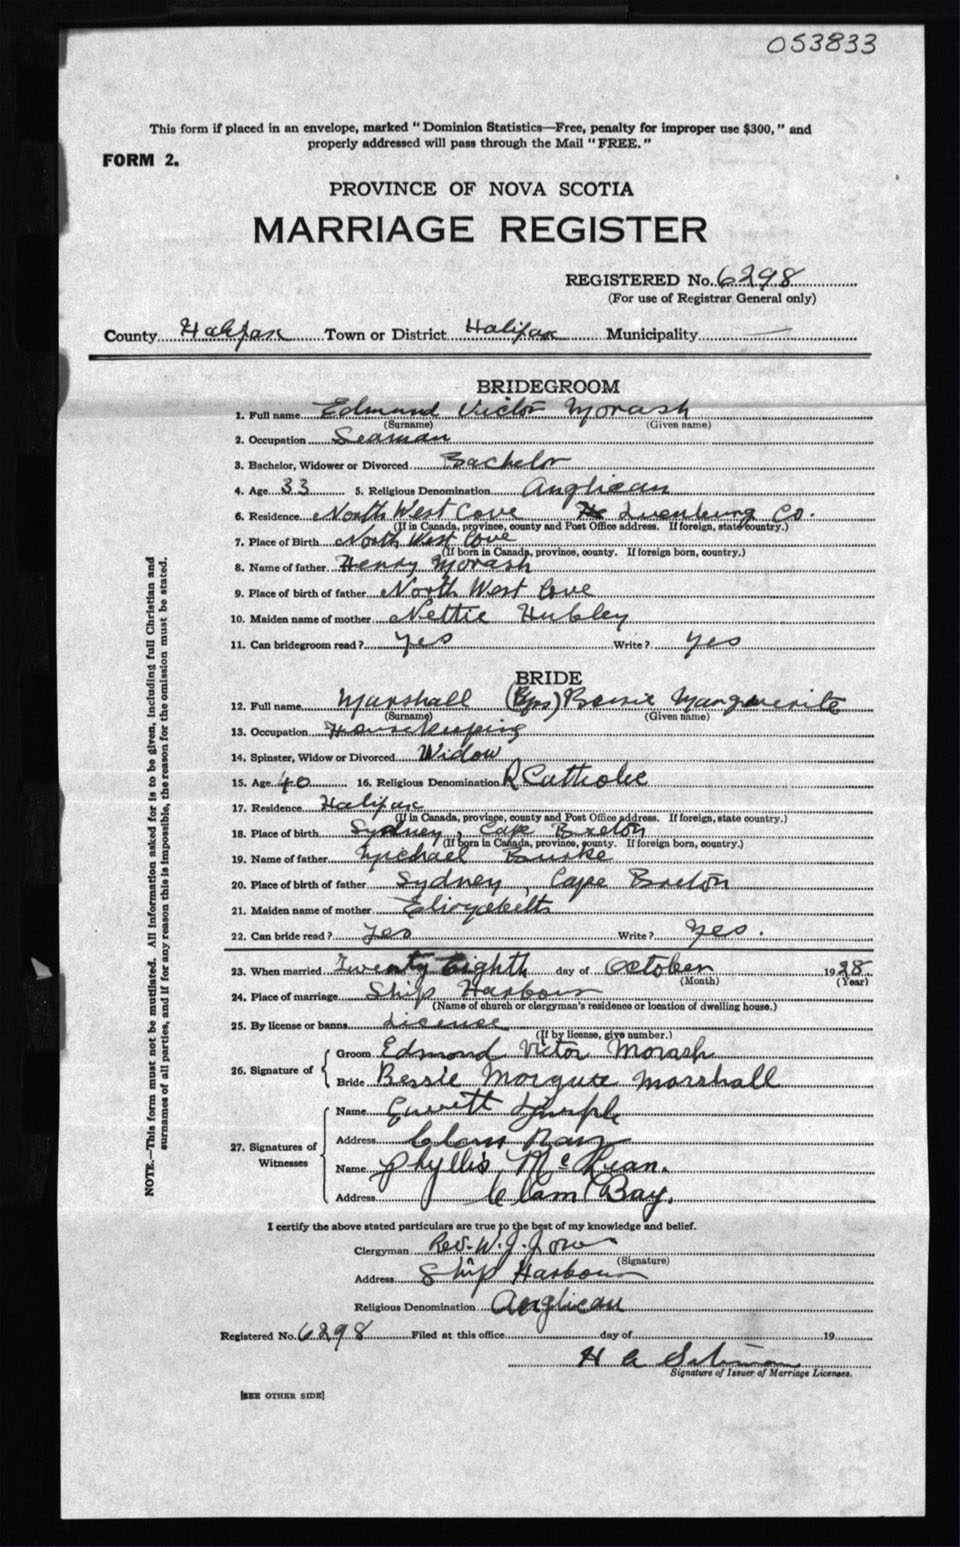 053833
This form if placed in an envelope, marked "Dominion Statistics—Free, penalty for improper use $300," and
properly addressed will pass through the Mail "FREE."
FORM 2.
PROVINCE OF NOVA SCOTIA
MARRIAGE REGISTER
REGISTERED No. 6298
(For use of Registrar General only)
County Halifax Town or District Halifax Municipality —
BRIDEGROOM
1. Full name Edmund Victor Morash
(Surname) (Given name)
2. Occupation Seaman
3. Bachelor, Widower or Divorced Bachelor
4. Age 33 5. Religious Denomination Anglican
6. Residence North West Cove Lunenburg Co.
(If in Canada, province, county and Post Office address. If foreign, state country.)
7. Place of Birth North West Cove
(If born in Canada, province, county. If foreign born, country.)
8. Name of father Henry Morash
9. Place of birth of father North West Cove
10. Maiden name of mother Nettie Hubley
11. Can bridegroom read? Yes Write? Yes
BRIDE
12. Full name Marshall Bessie Marguerite
(Surname) (Given name)
13. Occupation Housekeeping
14. Spinster, Widow or Divorced Widow
15. Age 40 16. Religious Denomination R Catholic
17. Residence Halifax
(If in Canada, province, county and Post Office address. If foreign, state country.)
18. Place of birth Sydney, Cape Breton
(If born in Canada, province, county. If foreign born, country.)
19. Name of father Michael Burke
20. Place of birth of father Sydney, Cape Breton
21. Maiden name of mother Elizabeth
22. Can bride read? Yes Write? Yes.
23. When married Twenty Eighth day of October 1928
(Month) (Year)
24. Place of marriage Ship Harbour
(Name of church or clergyman's residence or location of dwelling house.)
25. By license or banns License
(If by license, give number.)
26. Signature of { Groom Edmond Victor Morash
Bride Bessie Marshall
27. Signatures of Witnesses { Name
Address Clam Bay
Name Phyllis
Address Clam Bay.
I certify the above stated particulars are true to the best of my knowledge and belief.
Clergyman Rev. W. J.
(Signature)
Address Ship Harbour
Religious Denomination Anglican
Registered No. 6298 Filed at this office day of 19
H A
Signature of Issuer of Marriage Licenses.
[SEE OTHER SIDE]
NOTE.—This form must not be mutilated. All information asked for is to be given, including full Christian and
surnames of all parties, and if for any reason this is impossible, the reason for the omission must be stated.